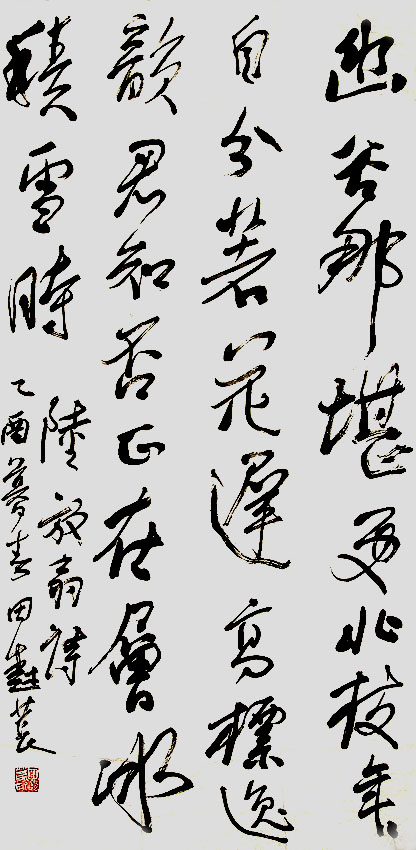 幽谷那堪更北枝年々
自分著花遲高標逸
韻君知否正在層冰
積雪時
陸放翁詩
乙酉暮春田樹萇